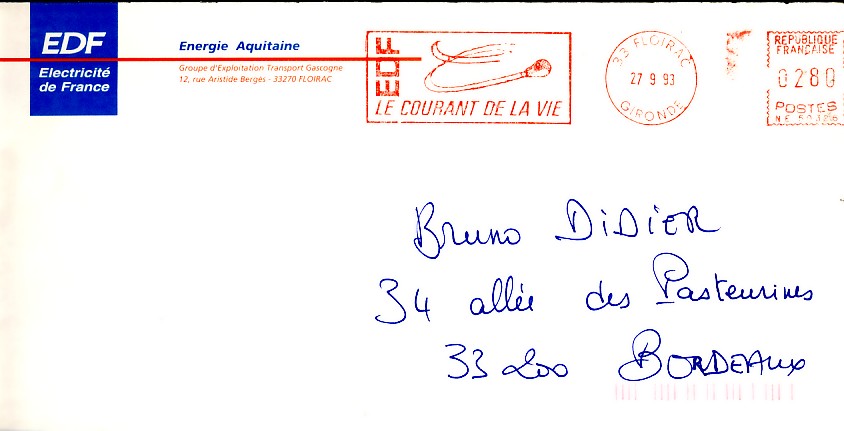 EDF
Electricité
de France
Energie Aquitaine
Groupe d'Exploitation Transport Gascogne
12, rue Aristide Bergès - 33270 FLOIRAC
EDF
LE COURANT DE LA VIE
33 FLOIRAC
27 9 93
GIRONDE
REPUBLIQUE
FRANÇAISE
0280
POSTES
Bruno DiDiER
34 allée des Pasteurines
33200 BORDEAUX